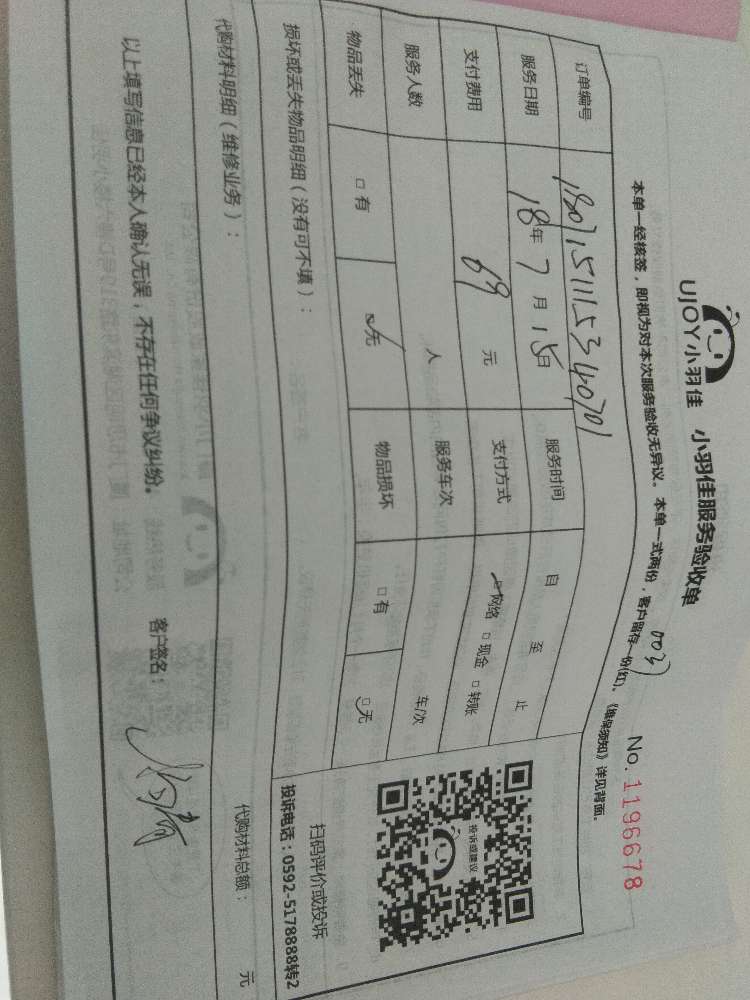 UJOY小羽佳 小羽佳服务验收单
No. 1196678
本单一经核签，即视为对本次服务验收无异议。本单一式两份，客户留存一份(红)。《维保须知》详见背面。
003
订单编号 1807151115340701
服务日期 18年7月15日 服务时间 自 至 止
支付费用 69元 支付方式 □网络 □现金 □转账
服务人数 人 服务车次 车/次
物品丢失 □有 □无 物品损坏 □有 □无
投诉或建议
扫码评价或投诉
投诉电话：0592-5178888转2
损坏或丢失物品明细（没有可不填）：
代购材料明细（维修业务）： 代购材料总额： 元
以上填写信息已经本人确认无误，不存在任何争议纠纷。 客户签名：